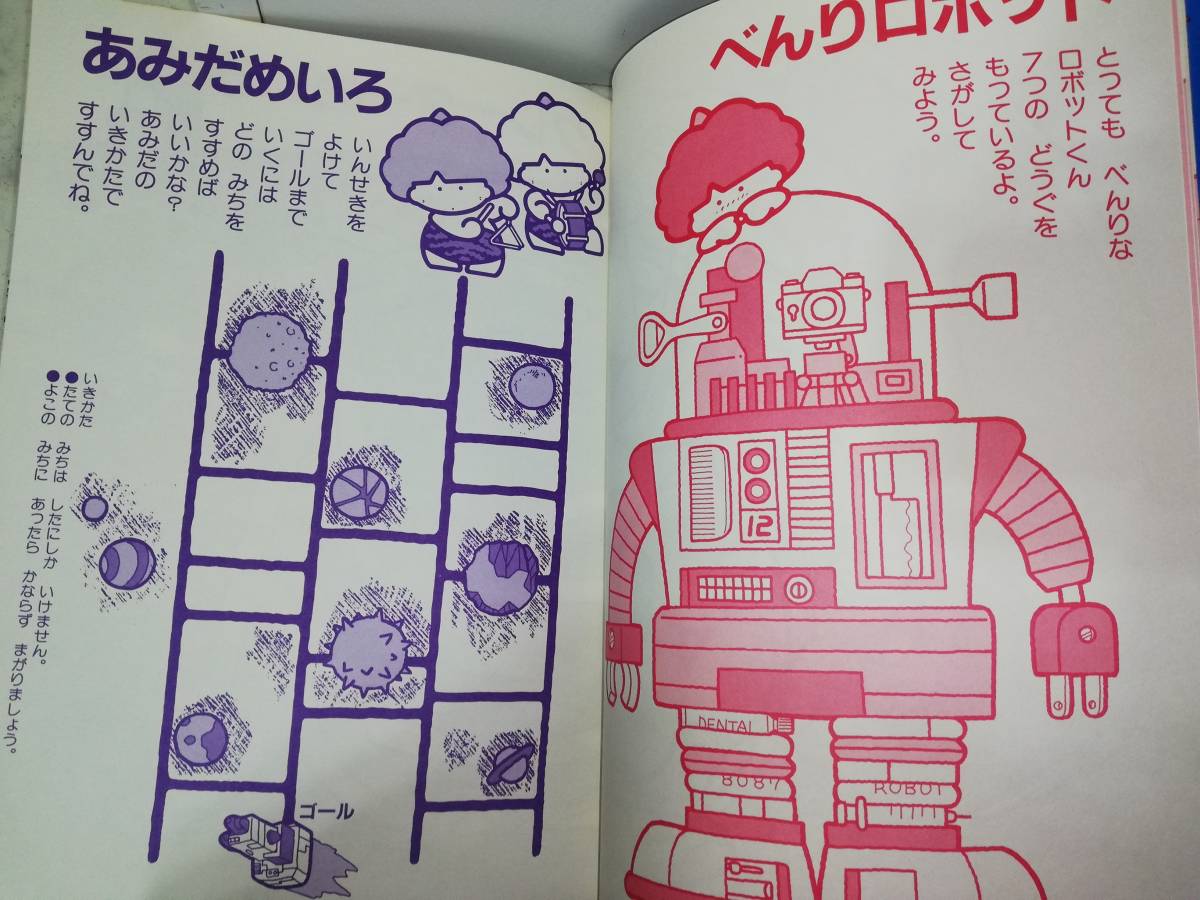 あみだめいろ
いんせきを
よけて
ゴールまで
いくには
どの みちを
すすめば
いいかな?
あみだの
いきかたで
すすんでね。
いきかた
●たての みちは したにしか いけません。
●よこの みちに あつたら かならず まがりましょう。
ゴール
べんりロボット
とつても べんりな
ロボットくん
7つの どうぐを
もつているよ。
さがして
みよう。
12
DENTAL
8087
ROBOT